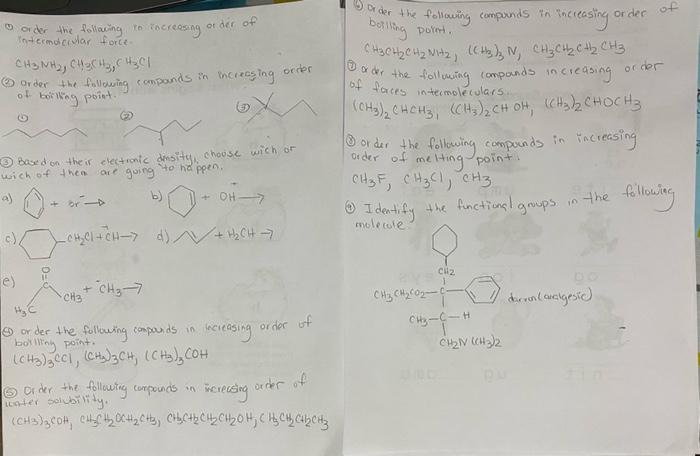 ① order the following in increasing order of
intermolecular force.
CH3NH2, CH3CH3, CH3Cl
② order the following compounds in increasing order
of boilling point.
① ② ③
③ Based on their electronic density, choose wich or
wich of them are going to happen.
a) + Br⁻ →
b) + OH⁻ →
c) -CH2Cl + OH →
d) + H2CH →
e) O
H3C CH3 + ⁻CH3 →
④ order the following compounds in increasing order of
boilling point.
(CH3)3CCl, (CH3)3CH, (CH3)3COH
⑤ Order the following compounds in increasing order of
water solubility.
(CH3)3COH, CH3CH2OCH2CH3, CH3CH2CH2CH2OH, CH3CH2CH2CH3
⑥ order the following compounds in increasing order of
boilling point.
CH3CH2CH2NH2, (CH3)3N, CH3CH2CH2CH3
⑦ order the following compounds increasing order
of forces intermoleculars.
(CH3)2CHCH3, (CH3)2CHOH, (CH3)2CHOCH3
⑧ order the following compounds in increasing
order of melting point.
CH3F, CH3Cl, CH3
⑨ Identify the functional groups in the following
molecule.
CH2
CH3CH2CO2-C- darvon (analgesic)
CH3-C-H
CH2N(CH3)2